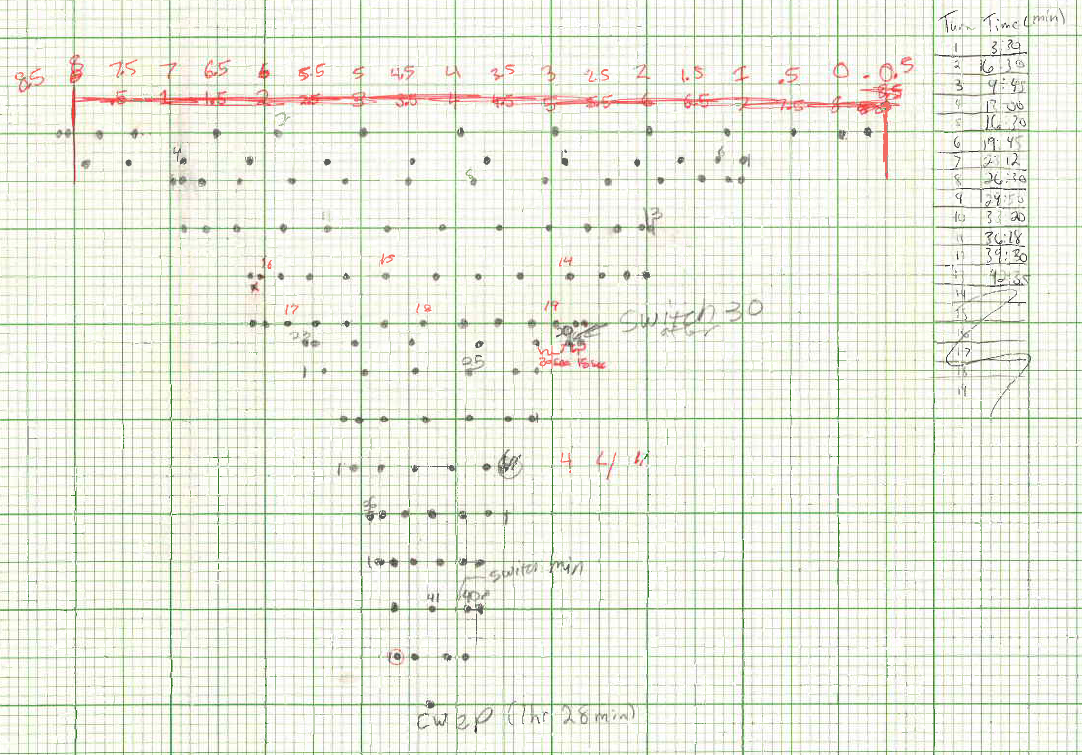 8.5 8 7.5 7 6.5 6 5.5 5 4.5 4 3.5 3 2.5 2 1.5 1 .5 0 -0.5
.5 1 1.5 2 2.5 3 3.5 4 4.5 5 5.5 6 6.5 7 7.5 8 8.5
4
8
13
16 15 14
17 18 19
Switch 30
after
25
20 sec 15 sec
1
1
1 4 4
36
1
switch min
41 40
CW ZP (1hr 28 min)
Turn Time (min)
1 3:30
2 6:30
3 9:45
4 13:00
5 16:20
6 19:45
7 23:12
8 26:30
9 29:50
10 33:20
11 36:18
39:30
42:35
14
15
16
17
18
19